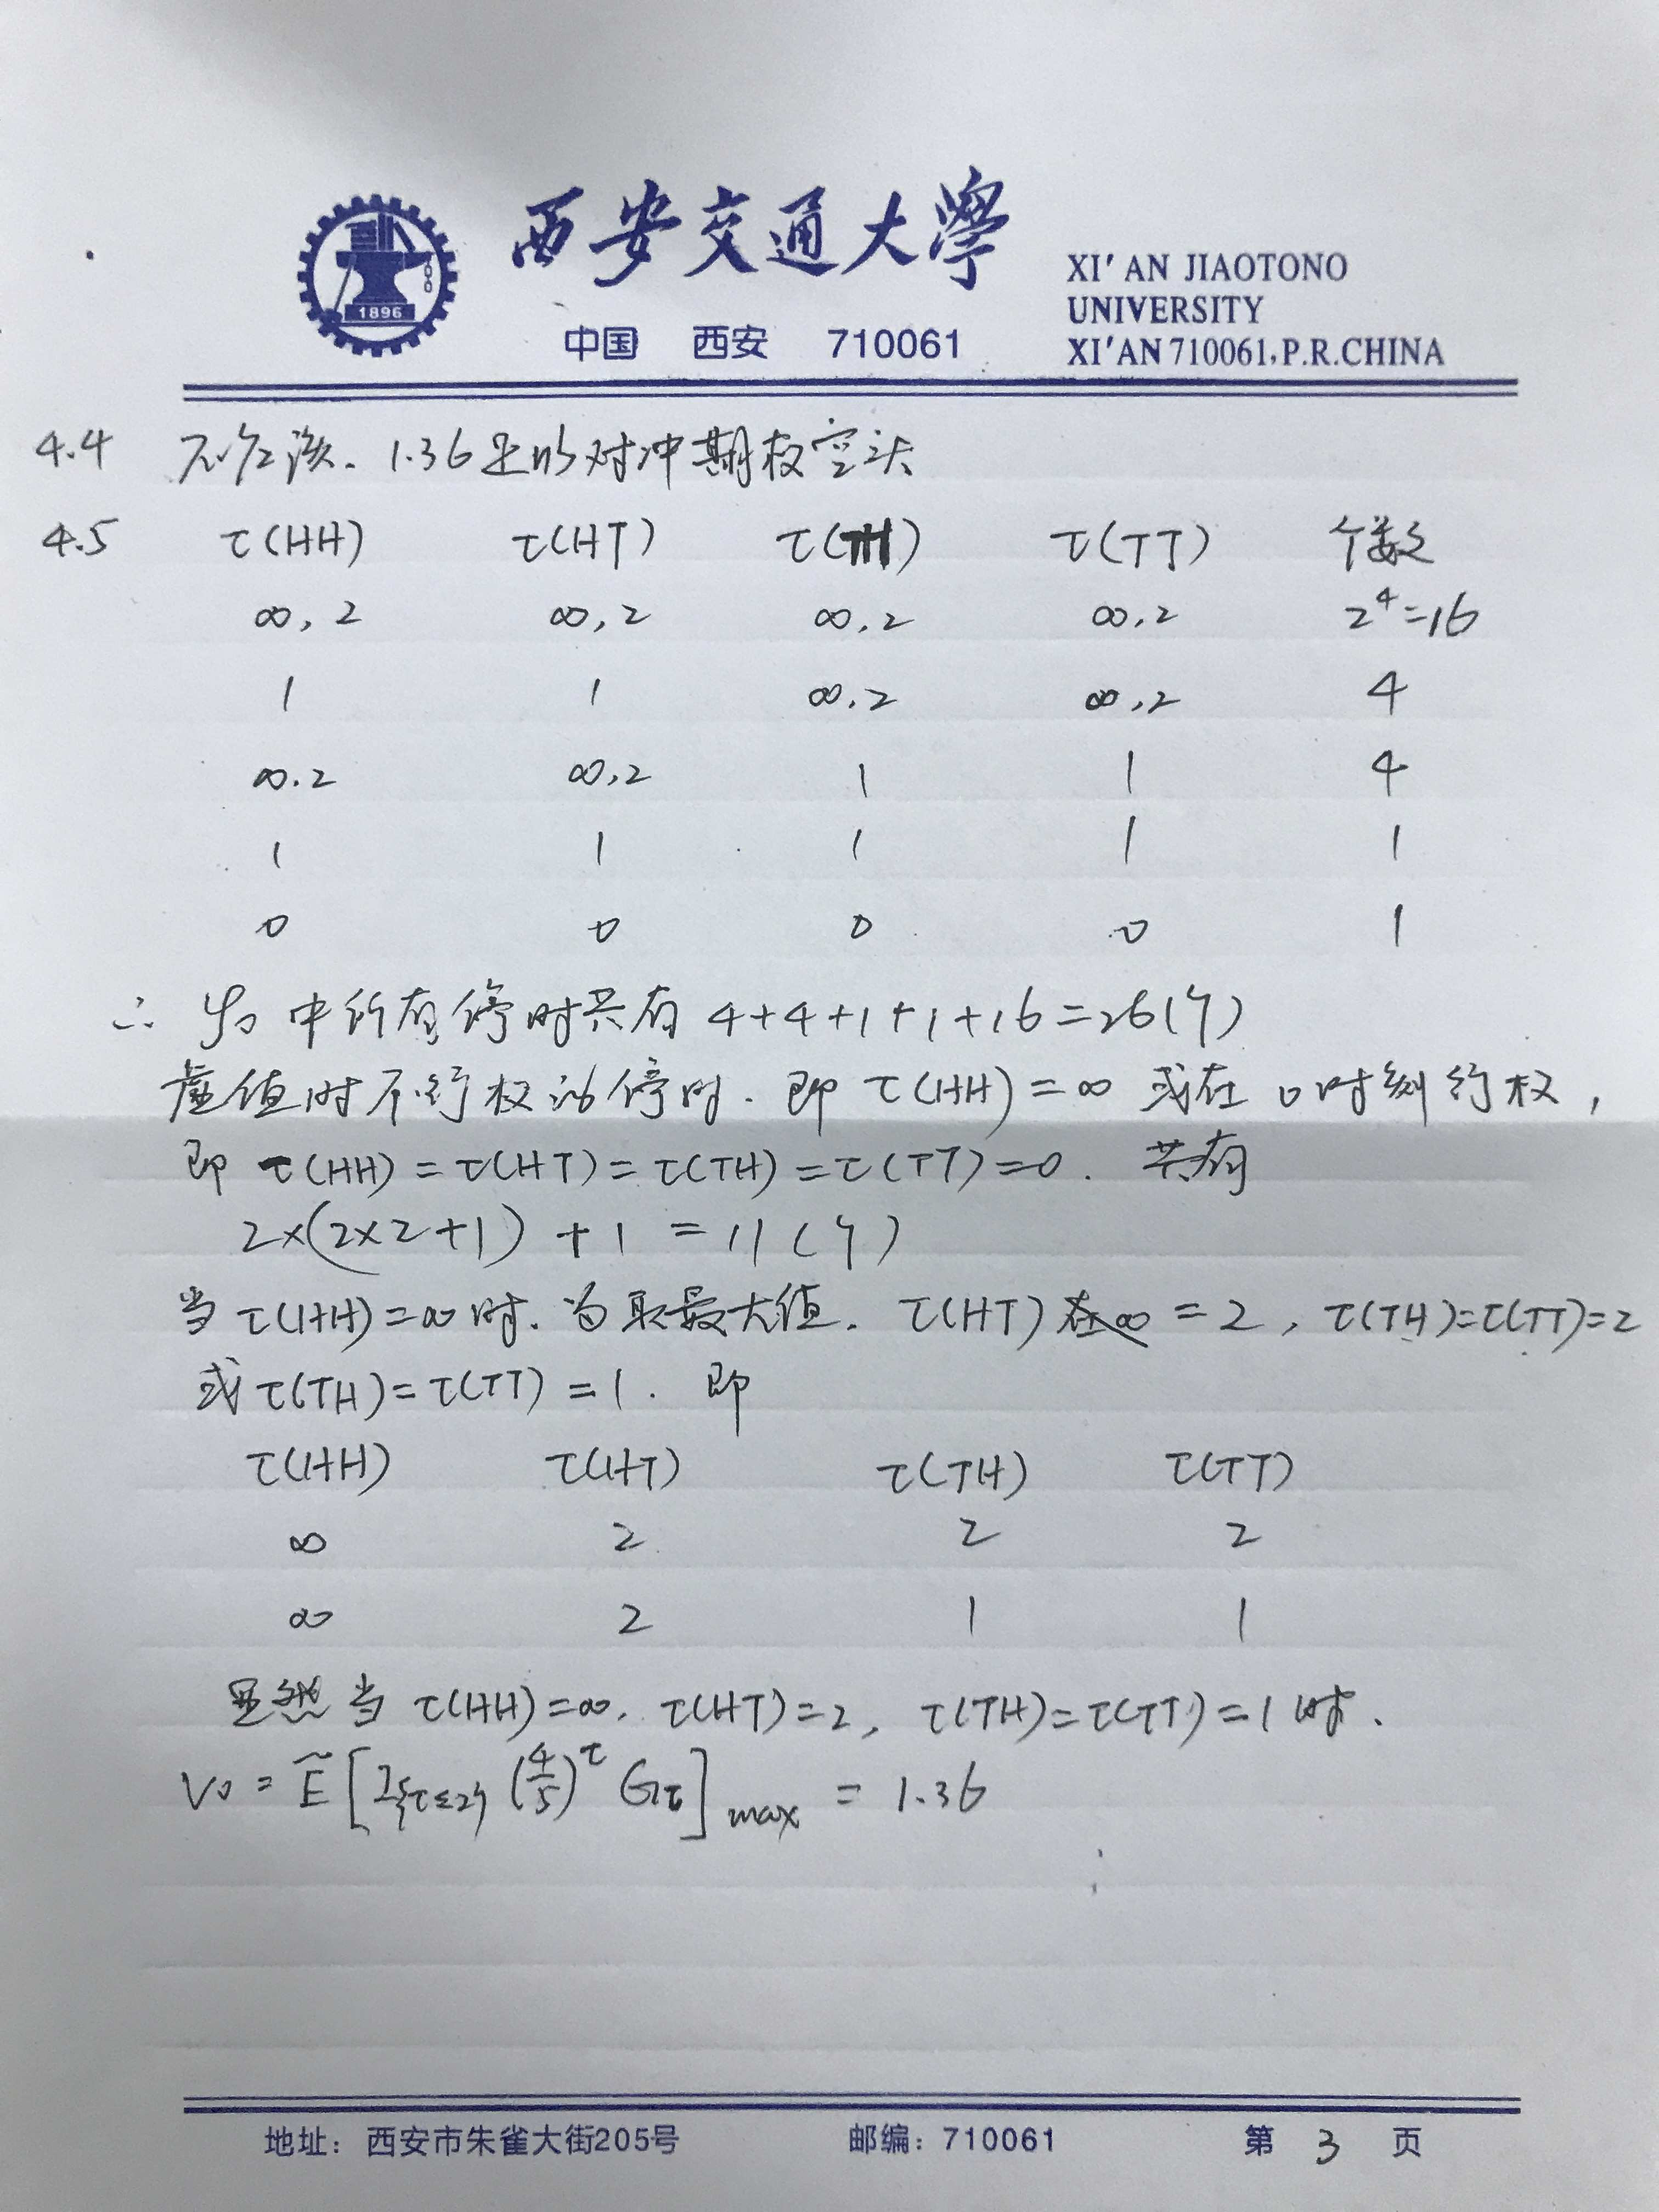 西安交通大學
中国 西安 710061
XI'AN JIAOTONO
UNIVERSITY
XI'AN 710061,P.R.CHINA
1896
4.4 不应该. 1.36足以对冲期权空头
4.5 τ(HH) τ(HT) τ(TH) τ(TT) 个数
∞, 2 ∞, 2 ∞, 2 ∞, 2 2⁴=16
1 1 ∞, 2 ∞, 2 4
∞, 2 ∞, 2 1 1 4
1 1 1 1 1
0 0 0 0 1
∴ 中所有停时共有 4+4+1+1+16=26(个)
虚值时不行权的停时. 即 τ(HH)=∞ 或在 0时刻行权,
即 τ(HH)=τ(HT)=τ(TH)=τ(TT)=0. 共有
2×(2×2+1)+1=11(个)
当τ(HH)=∞时. 为取最大值. τ(HT)=2, τ(TH)=τ(TT)=2
或τ(TH)=τ(TT)=1. 即
τ(HH) τ(HT) τ(TH) τ(TT)
∞ 2 2 2
∞ 2 1 1
显然当 τ(HH)=∞, τ(HT)=2, τ(TH)=τ(TT)=1时.
V₀ = Ẽ[I{τ≤2}(4/5)^τ Gτ]max = 1.36
地址：西安市朱雀大街205号 邮编：710061 第 3 页